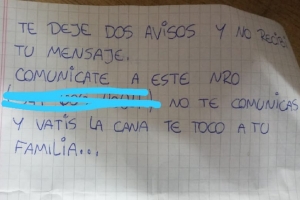 TE DEJE DOS AVISOS Y NO RECIBI
TU MENSAJE.
COMUNÍCATE A ESTE NRO
NO TE COMUNICAS
Y VATIS LA CANA TE TOCO A TU
FAMILIA...